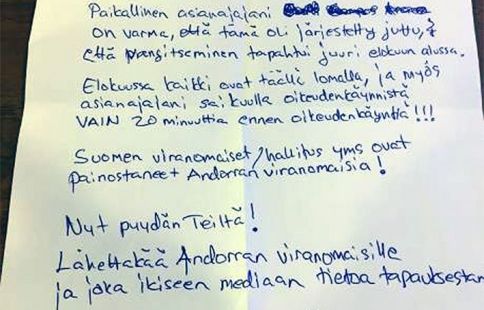 Paikallinen asianajajani
on varma, että tämä oli järjestetty juttu,
että pangitseminen tapahtui juuri elokuun alussa.
Elokuussa kaikki ovat täällä lomalla, ja myös
asianajalani sai kuulla oikeudenkäynnistä
VAIN 20 minuuttia ennen oikeudenkäyntiä!!!
Suomen viranomaiset/hallitus yms ovat
painostaneet Andorran viranomaisia!
Nyt pyydän Teiltä!
Lähettäkää Andorran viranomaisille
ja joka ikiseen mediaan tietoa tapauksestan